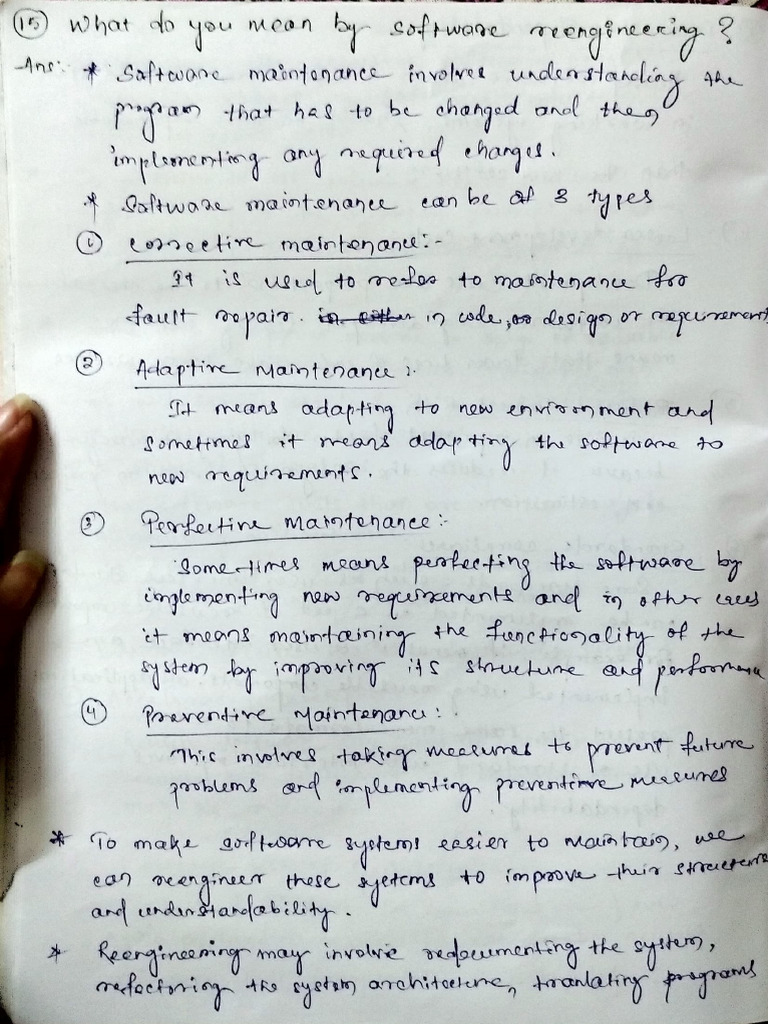 15 What do you mean by software reengineering ?
Ans:- * Software maintenance involves understanding the
program that has to be changed and then
implementing any required changes.
* Software maintenance can be of 3 types
1 Corrective maintenance:-
It is used to refer to maintenance for
fault repair. in code, or design or requirement
2 Adaptive Maintenance :.
It means adapting to new environment and
sometimes it means adapting the software to
new requirements.
3 Perfective Maintenance :-
Sometimes means perfecting the software by
implementing new requirements and in other cases
it means maintaining the functionality of the
system by improving its structure and performance
4 Preventive Maintenance :.
This involves taking measures to prevent future
problems and implementing preventive measures
* To make software systems easier to maintain, we
can reengineer these systems to improve their structure
and understandability.
* Reengineering may involve redocumenting the system,
refactoring the system architecture, translating programs